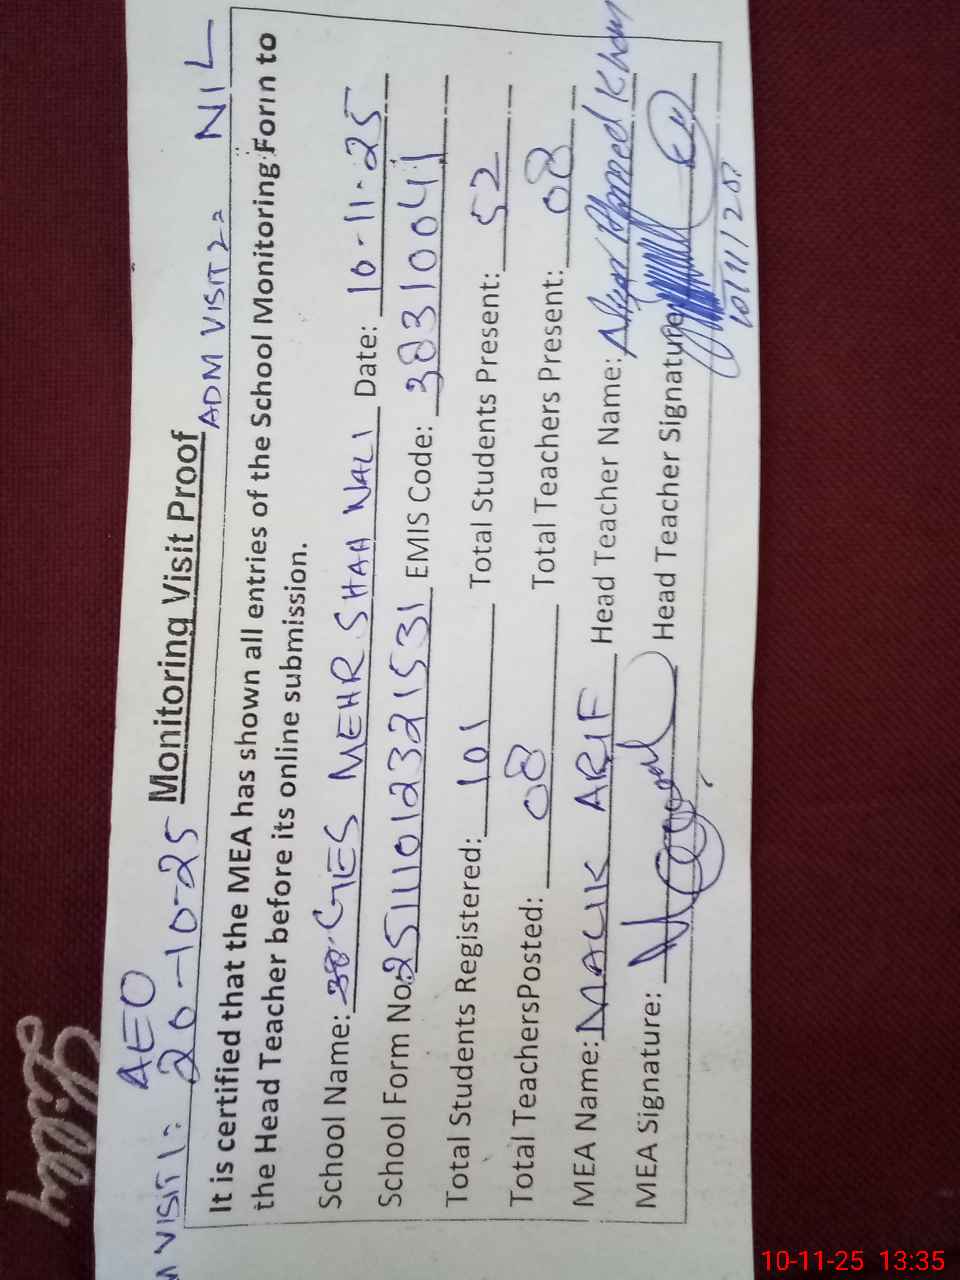 AEO
M VISIT 1: 20-10-25 Monitoring Visit Proof ADM VISIT 2= NIL
It is certified that the MEA has shown all entries of the School Monitoring Form to
the Head Teacher before its online submission.
School Name: GES MEHR SHAH WALI Date: 10-11-25
School Form No: 2511101232 1531 EMIS Code: 38310041
Total Students Registered: 101 Total Students Present: 52
Total TeachersPosted: 08 Total Teachers Present: 08
MEA Name: MALIK ARIF Head Teacher Name: Ahmed Khan
MEA Signature: Head Teacher Signature:
10/11/25
10-11-25 13:35